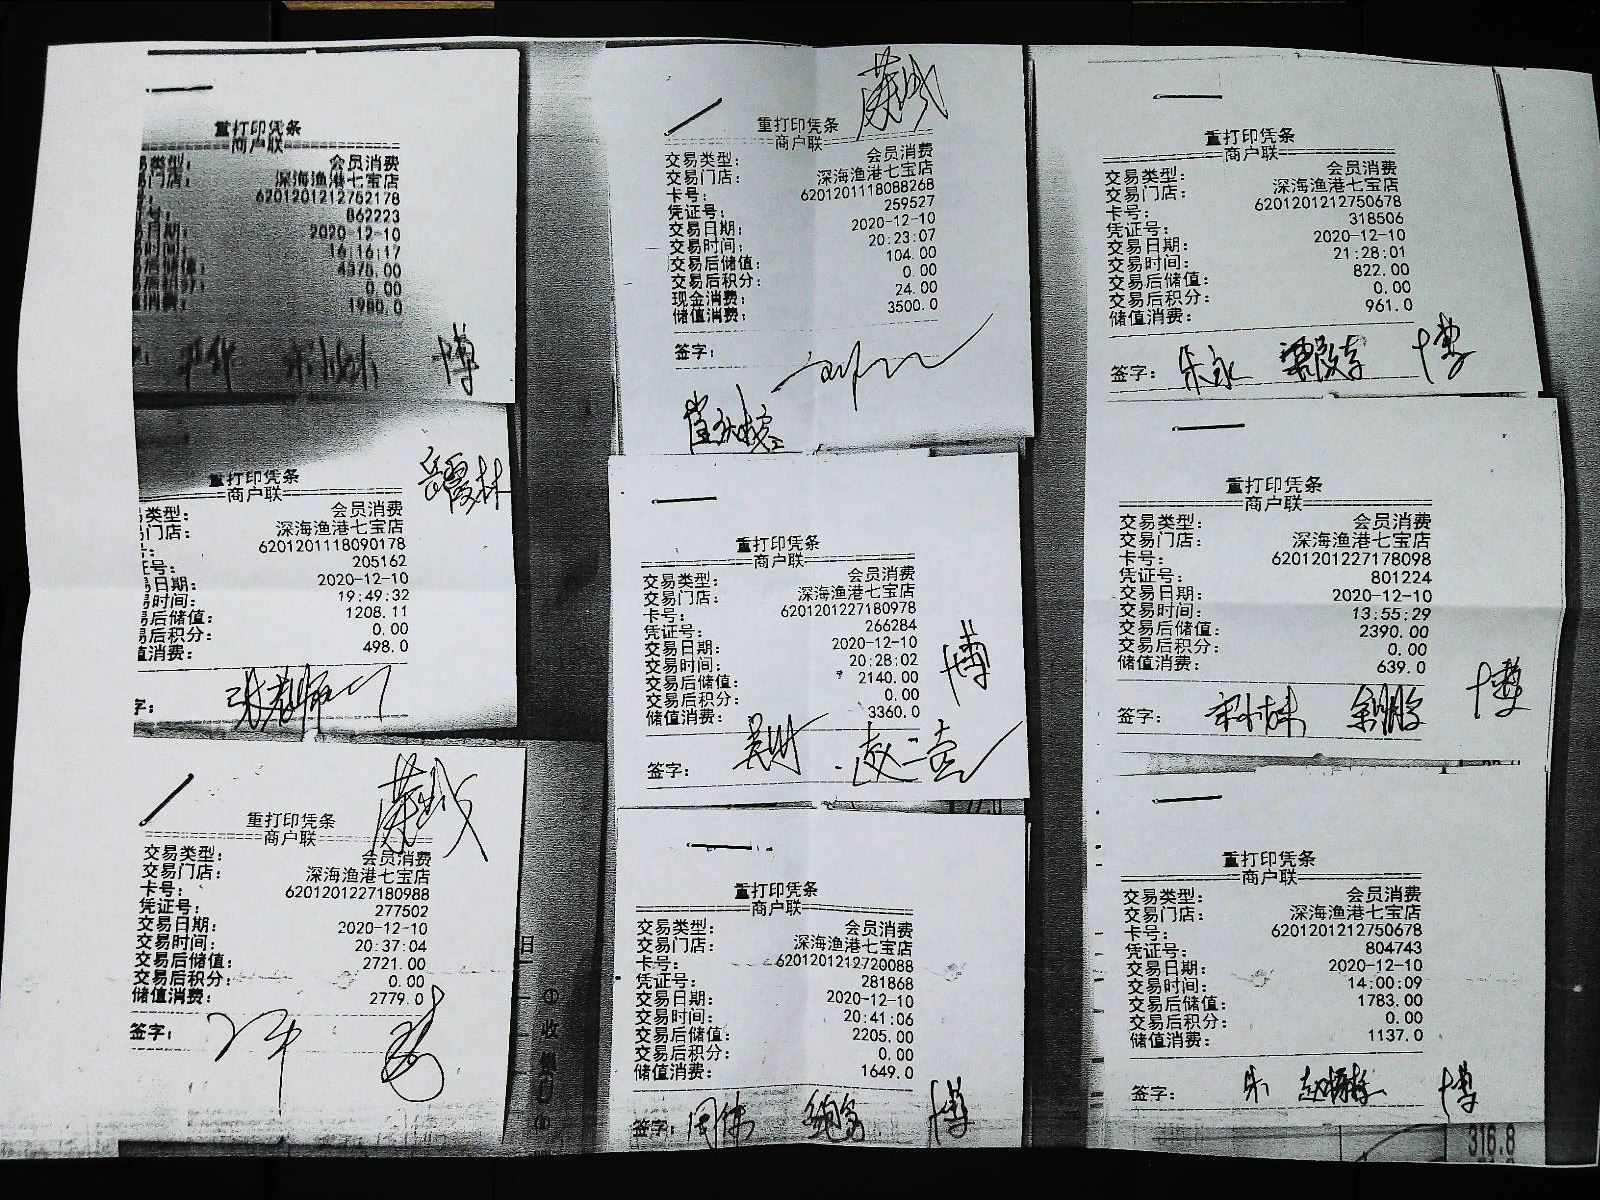 重打印凭条
商户联
易类型： 会员消费
易门店： 深海渔港七宝店
6201201212752178
862223
2020-12-10
16:16:17
4375.00
0.00
1980.0
博
重打印凭条
商户联
易类型： 会员消费
易门店： 深海渔港七宝店
号： 6201201118090178
证号： 205162
易日期： 2020-12-10
易时间： 19:49:32
易后储值： 1208.11
易后积分： 0.00
值消费： 498.0
字：
张老师
重打印凭条
商户联
交易类型： 会员消费
交易门店： 深海渔港七宝店
卡号： 6201201227180988
凭证号： 277502
交易日期： 2020-12-10
交易时间： 20:37:04
交易后储值： 2721.00
交易后积分： 0.00
储值消费： 2779.0
签字：
重打印凭条
商户联
交易类型： 会员消费
交易门店： 深海渔港七宝店
卡号： 6201201118088268
凭证号： 259527
交易日期： 2020-12-10
交易时间： 20:23:07
交易后储值： 104.00
交易后积分： 0.00
现金消费： 24.00
储值消费： 3500.0
签字：
重打印凭条
商户联
交易类型： 会员消费
交易门店： 深海渔港七宝店
卡号： 6201201227180978
凭证号： 266284
交易日期： 2020-12-10
交易时间： 20:28:02
交易后储值： 2140.00
交易后积分： 0.00
储值消费： 3360.0
博
签字：
重打印凭条
商户联
交易类型： 会员消费
交易门店： 深海渔港七宝店
卡号： 6201201212720088
凭证号： 281868
交易日期： 2020-12-10
交易时间： 20:41:06
交易后储值： 2205.00
交易后积分： 0.00
储值消费： 1649.0
签字： 周伟 博
重打印凭条
商户联
交易类型： 会员消费
交易门店： 深海渔港七宝店
卡号： 6201201212750678
凭证号： 318506
交易日期： 2020-12-10
交易时间： 21:28:01
交易后储值： 822.00
交易后积分： 0.00
储值消费： 961.0
签字： 朱永 博
重打印凭条
商户联
交易类型： 会员消费
交易门店： 深海渔港七宝店
卡号： 6201201227178098
凭证号： 801224
交易日期： 2020-12-10
交易时间： 13:55:29
交易后储值： 2390.00
交易后积分： 0.00
储值消费： 639.0
签字： 博
重打印凭条
商户联
交易类型： 会员消费
交易门店： 深海渔港七宝店
卡号： 6201201212750678
凭证号： 804743
交易日期： 2020-12-10
交易时间： 14:00:09
交易后储值： 1783.00
交易后积分： 0.00
储值消费： 1137.0
签字： 朱 博
316.8